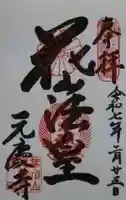 奉拝
令和七年二月廿三日
花山法皇
元慶寺